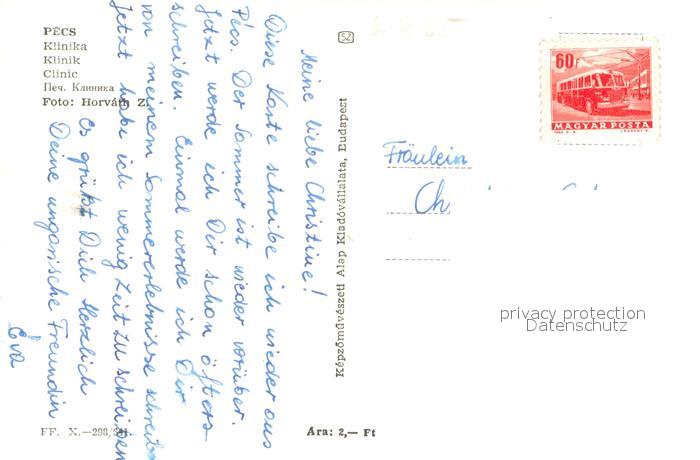 PÉCS
Klinika
Klinik
Clinic
Печ. Клиника
Foto: Horváth Z.
Meine liebe Christine!
Diese Karte schreibe ich wieder aus
Pécs. Der Sommer ist wieder vorüber.
Jetzt werde ich Dir schon öfters
schreiben. Einmal werde ich Dir
von meinem Sommererlebnisse schreiben
Jetzt habe ich wenig Zeit zu schreiben
es grüßt Dich Herzlich
Deine ungarische Freundin
Éva
FF. X.—298/
52
Képzőművészeti Alap Kiadóvállalata, Budapest
Ára: 2,— Ft
60f
MAGYAR POSTA
Fräulein
Ch
privacy protection
Datenschutz